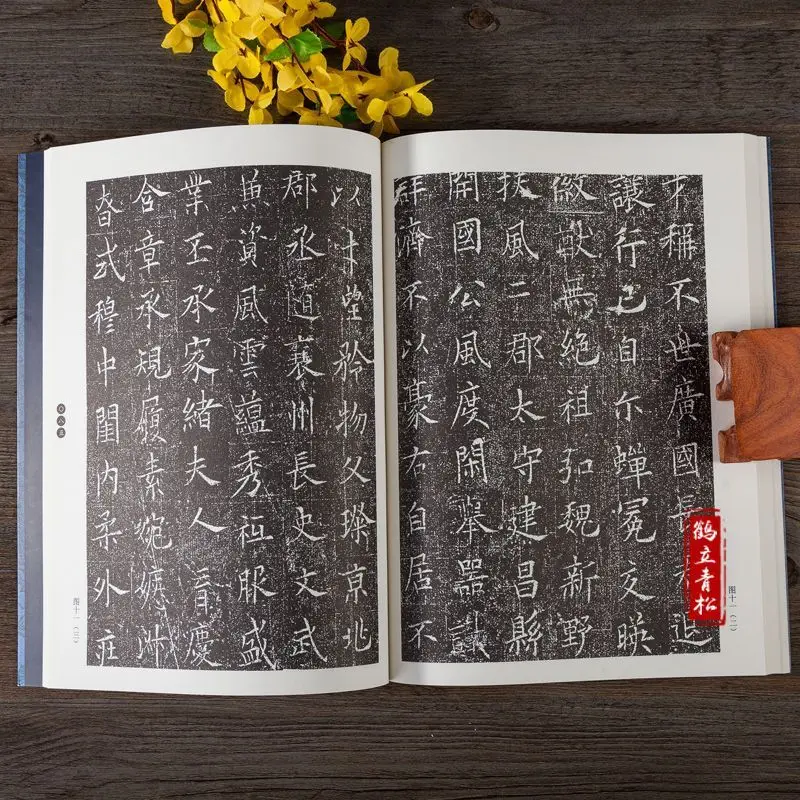 才稱不世廣國長 退
讓行己自尔蟬冕交暎
徽猷無絕祖弘魏新野
扶風二郡太守建昌縣
開國公風度閑舉器識
群濟不以豪右自居不
以才望矜物父璨京兆
郡丞随襄州長史文武
兼資風雲蘊秀祗服盛
業丕承家緒夫人 慶
含章承規履素婉嫕淑
眘式穆中閨内柔外莊
图十一(二)
图十一(三)
〇八五
鹤立青松